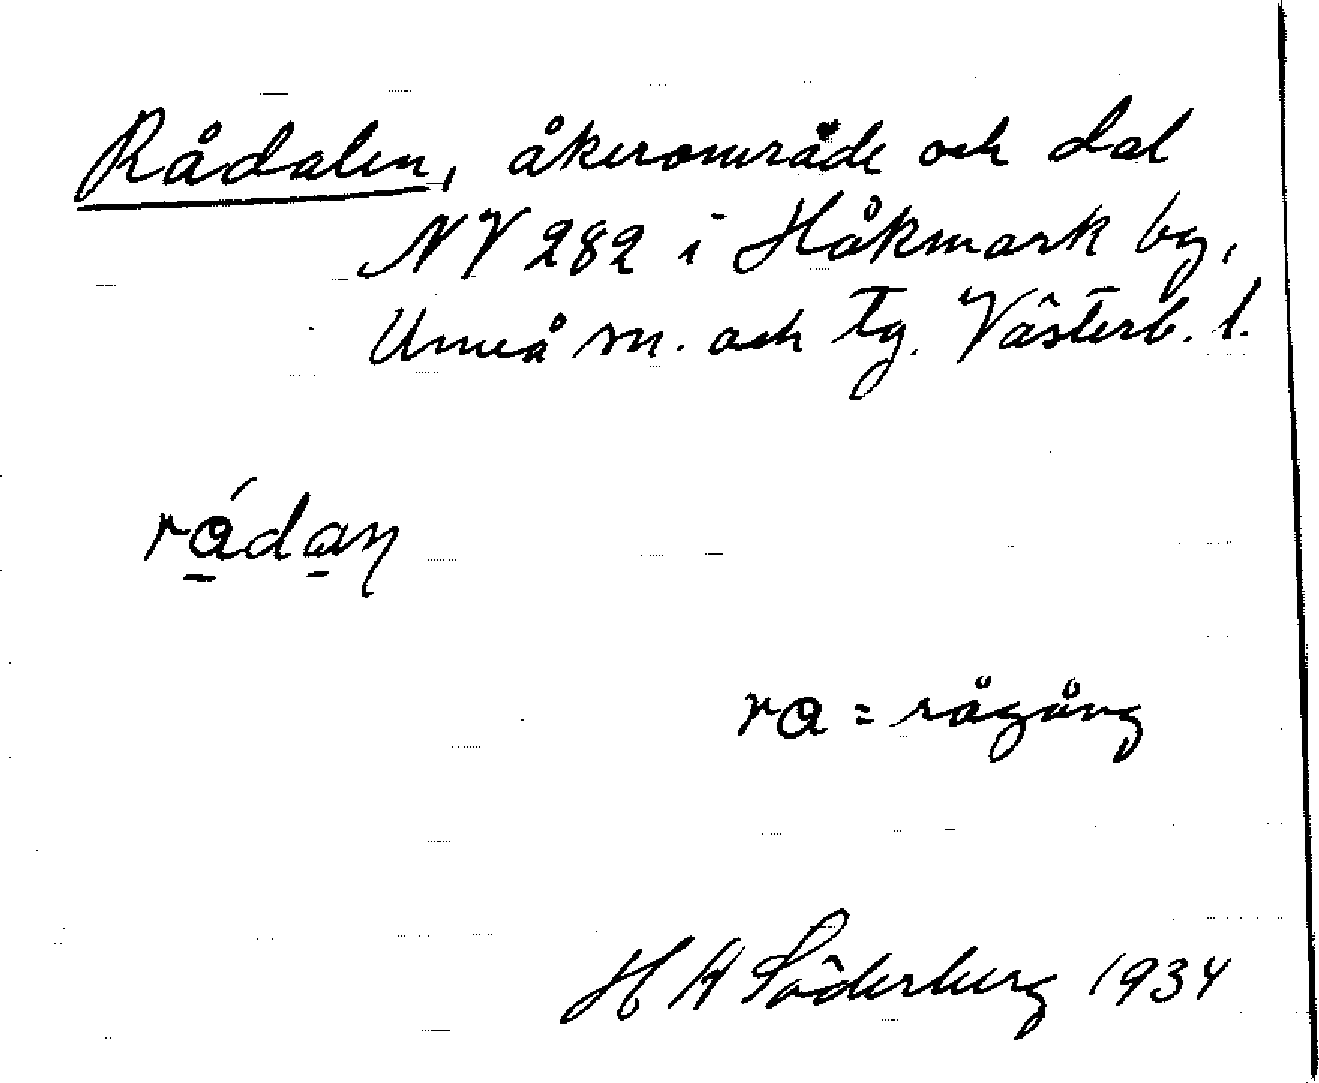 Rådalen, åkerområde och dal
NV 282 i Håkmark by,
Umeå sn. och tg. Västerb. l.
rá̱da̱n
ra = rågång
H A Söderberg 1934